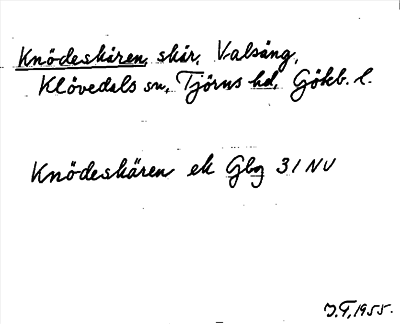 Knödeskären, skär, Valsäng,
Klövedals sn, Tjörns hd, Gökb. l.
Knödeskären ek Gbg 31 NV
J.T. 1955.